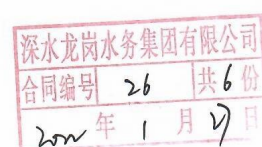 深水龙岗水务集团有限公司
合同编号 26 共6份
2022年1月27日